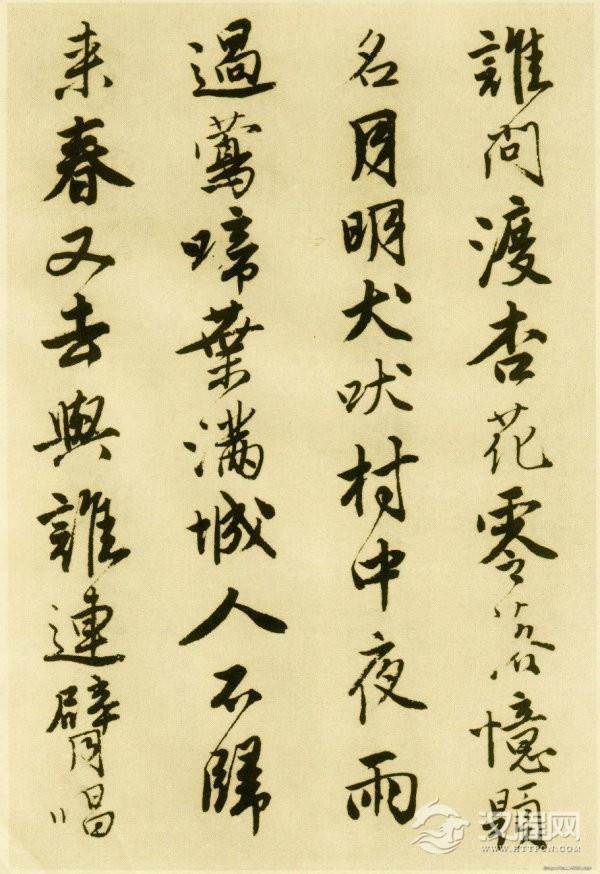 誰問渡杏花零落憶題
名月明犬吠村中夜雨
過鶯啼葉滿城人不歸
来春又去與誰連臂唱
汉程网
HTTPCN.COM